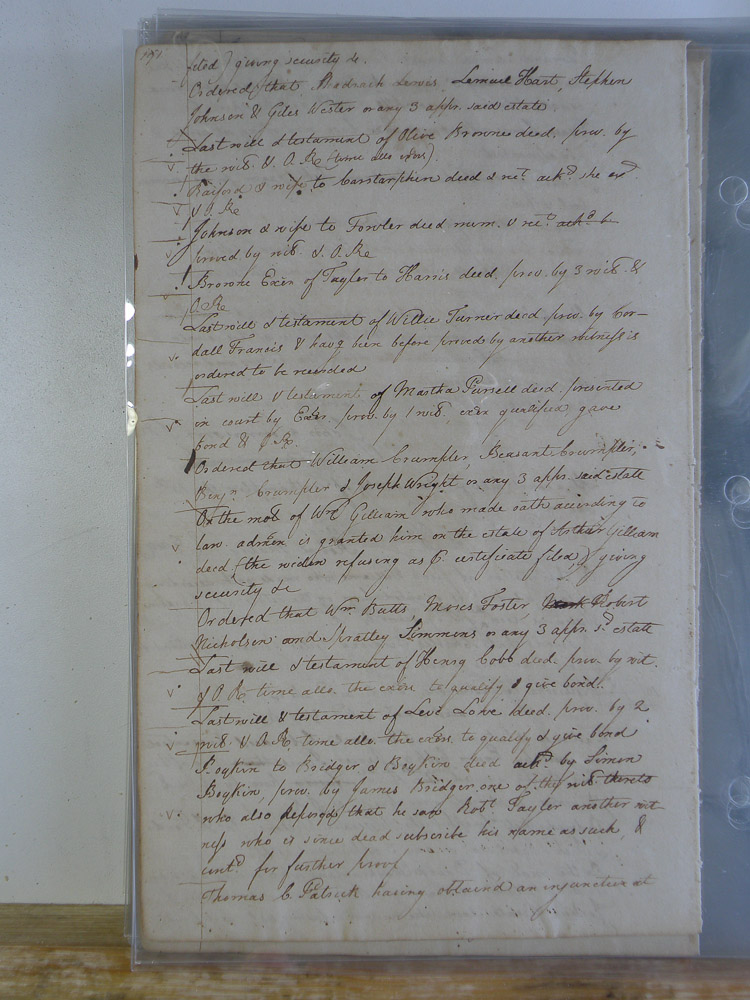 filed) giving security &c.
Ordered that Shadrach Lewis, Lemuel Hart, Stephen
Johnson & Giles Wester or any 3 appr. said estate
Last will & testament of Olive Browne decd. prov. by
the wits. & O.R. (time allo. exors).
Raiford & wife to Carstarphen deed & rect. ackd. she exd
& O.R.
Johnson & wife to Fowler deed mem. & rect. ackd. b
proved by wits & O.Re
Browne Exor of Taylor to Harris deed, prov. by 3 wits. &
O.R.
Last will & testament of Willie Turner decd. prov. by Cor-
dall Francis & havg been before proved by another witness is
ordered to be recorded
Last will & testament of Martha Pursell decd. presented
in court by Exor. prov. by 1 wits, exor qualified gave
bond & O.R.
Ordered that William Crumpler, Beasant Crumpler,
Benjn. Crumpler & Joseph Wright or any 3 appr. said estate
On the mot of Wm Gilliam who made oath according to
law. admon is granted him on the estate of Arthur Gilliam
decd (the widow refusing as p. certificate filed,) giving
security &c
Ordered that Wm. Butts, Moses Foster, Robert
Nicholson and Spratley Simmons or any 3 appr. sd. estate
Last will & testament of Henry Cobb decd. prov. by wit.
& O.R. time allo. the exors to qualify & give bond.
Last will & testament of Levi Lowe decd. prov. by 2
wits & O.R. time allo. the exors. to qualify & give bond
Boykin to Bridger & Boykin deed ackd. by Simon
Boykin, prov. by James Bridger, one of the wits thereto
who also deposed that he saw Robt. Taylor another wit
ness who is since dead subscribe his name as such, &
contd. for further proof
Thomas C. Patrick having obtained an injunction at